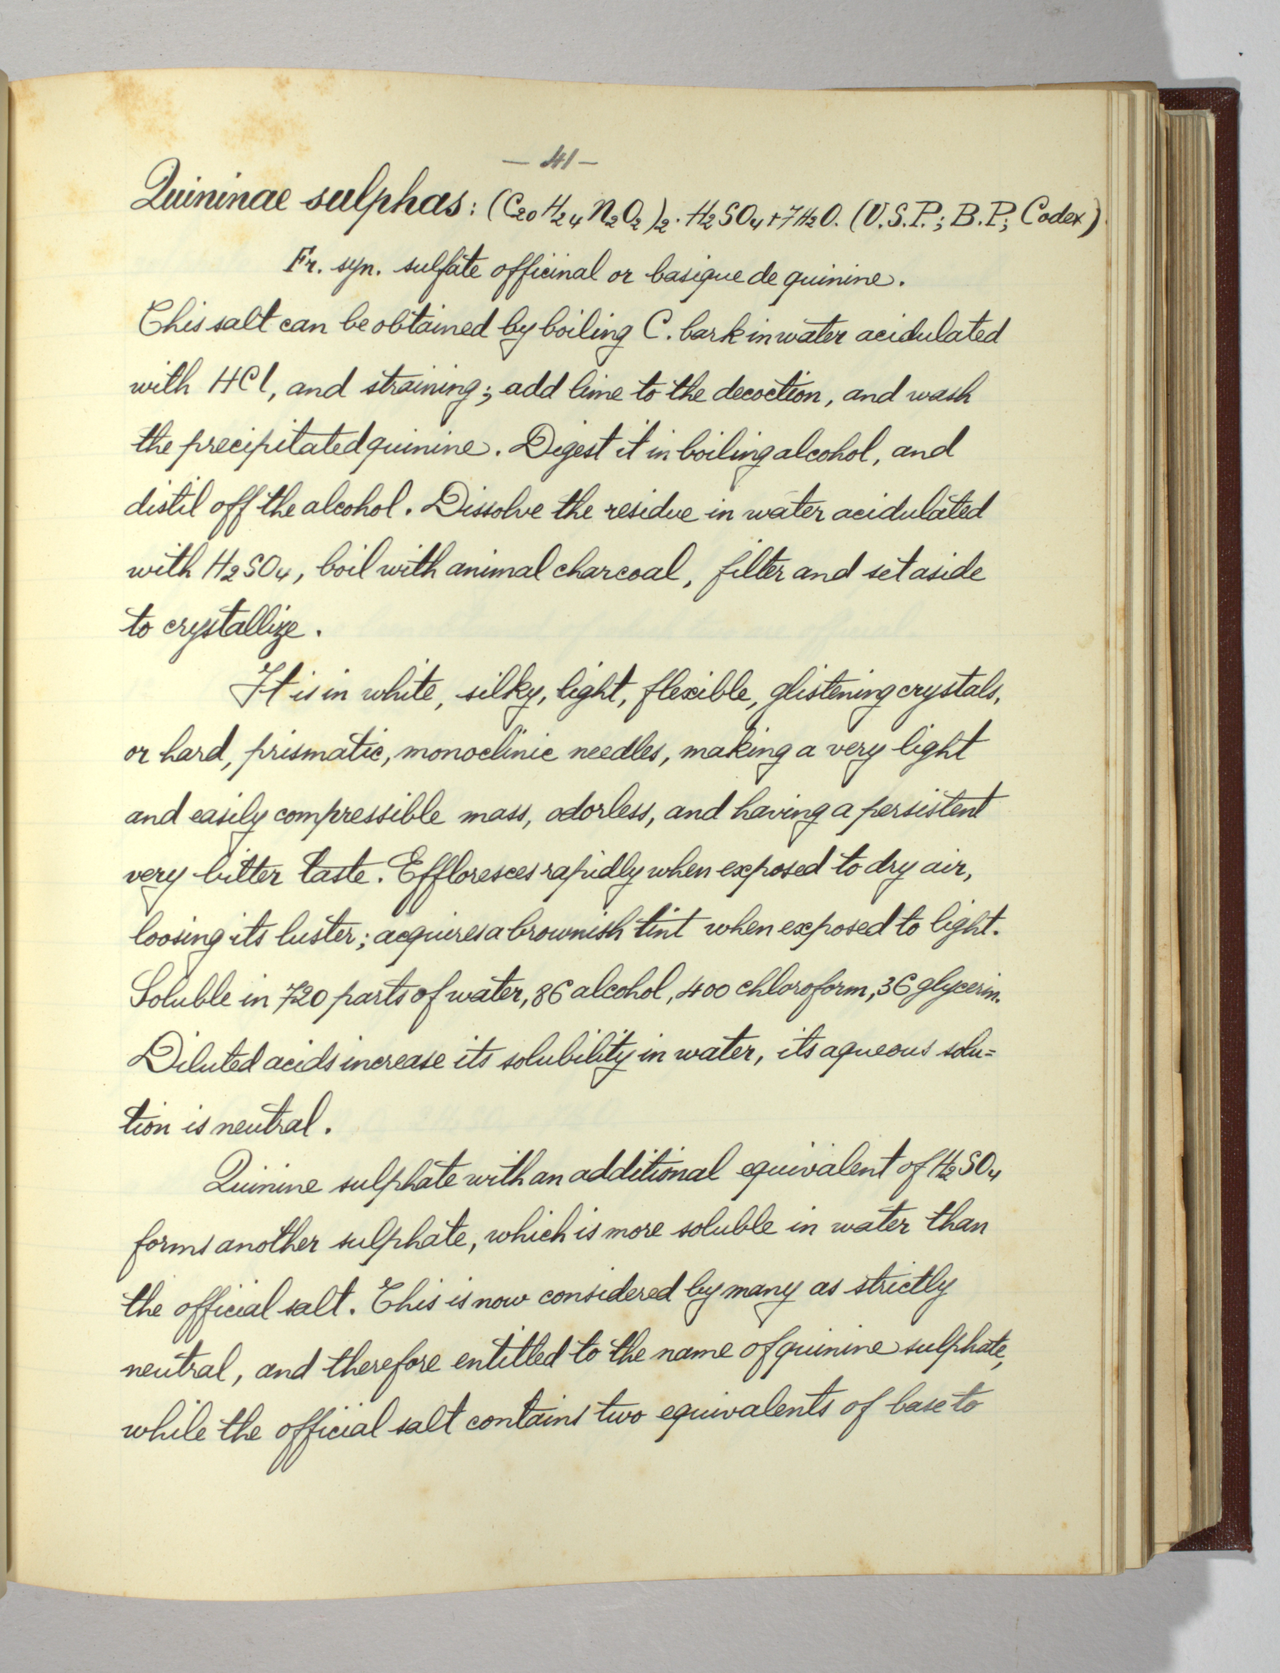 — 41 —
Quininae sulphas: (C₂₀H₂₄N₂O₂)₂. H₂SO₄+7H₂O. (U.S.P.; B.P.; Codex)
Fr. syn. sulfate officinal or basique de quinine.
This salt can be obtained by boiling C. bark in water acidulated
with HCl, and straining; add lime to the decoction, and wash
the precipitated quinine. Digest it in boiling alcohol, and
distil off the alcohol. Dissolve the residue in water acidulated
with H₂SO₄, boil with animal charcoal, filter and set aside
to crystallize.
It is in white, silky, light, flexible, glistening crystals,
or hard, prismatic, monoclinic needles, making a very light
and easily compressible mass, odorless, and having a persistent
very bitter taste. Effloresces rapidly when exposed to dry air,
loosing its luster; acquires a brownish tint when exposed to light.
Soluble in 720 parts of water, 86 alcohol, 400 chloroform, 36 glycerin.
Diluted acids increase its solubility in water, its aqueous solu=
tion is neutral.
Quinine sulphate with an additional equivalent of H₂SO₄
forms another sulphate, which is more soluble in water than
the official salt. This is now considered by many as strictly
neutral, and therefore entitled to the name of quinine sulphate,
while the official salt contains two equivalents of base to